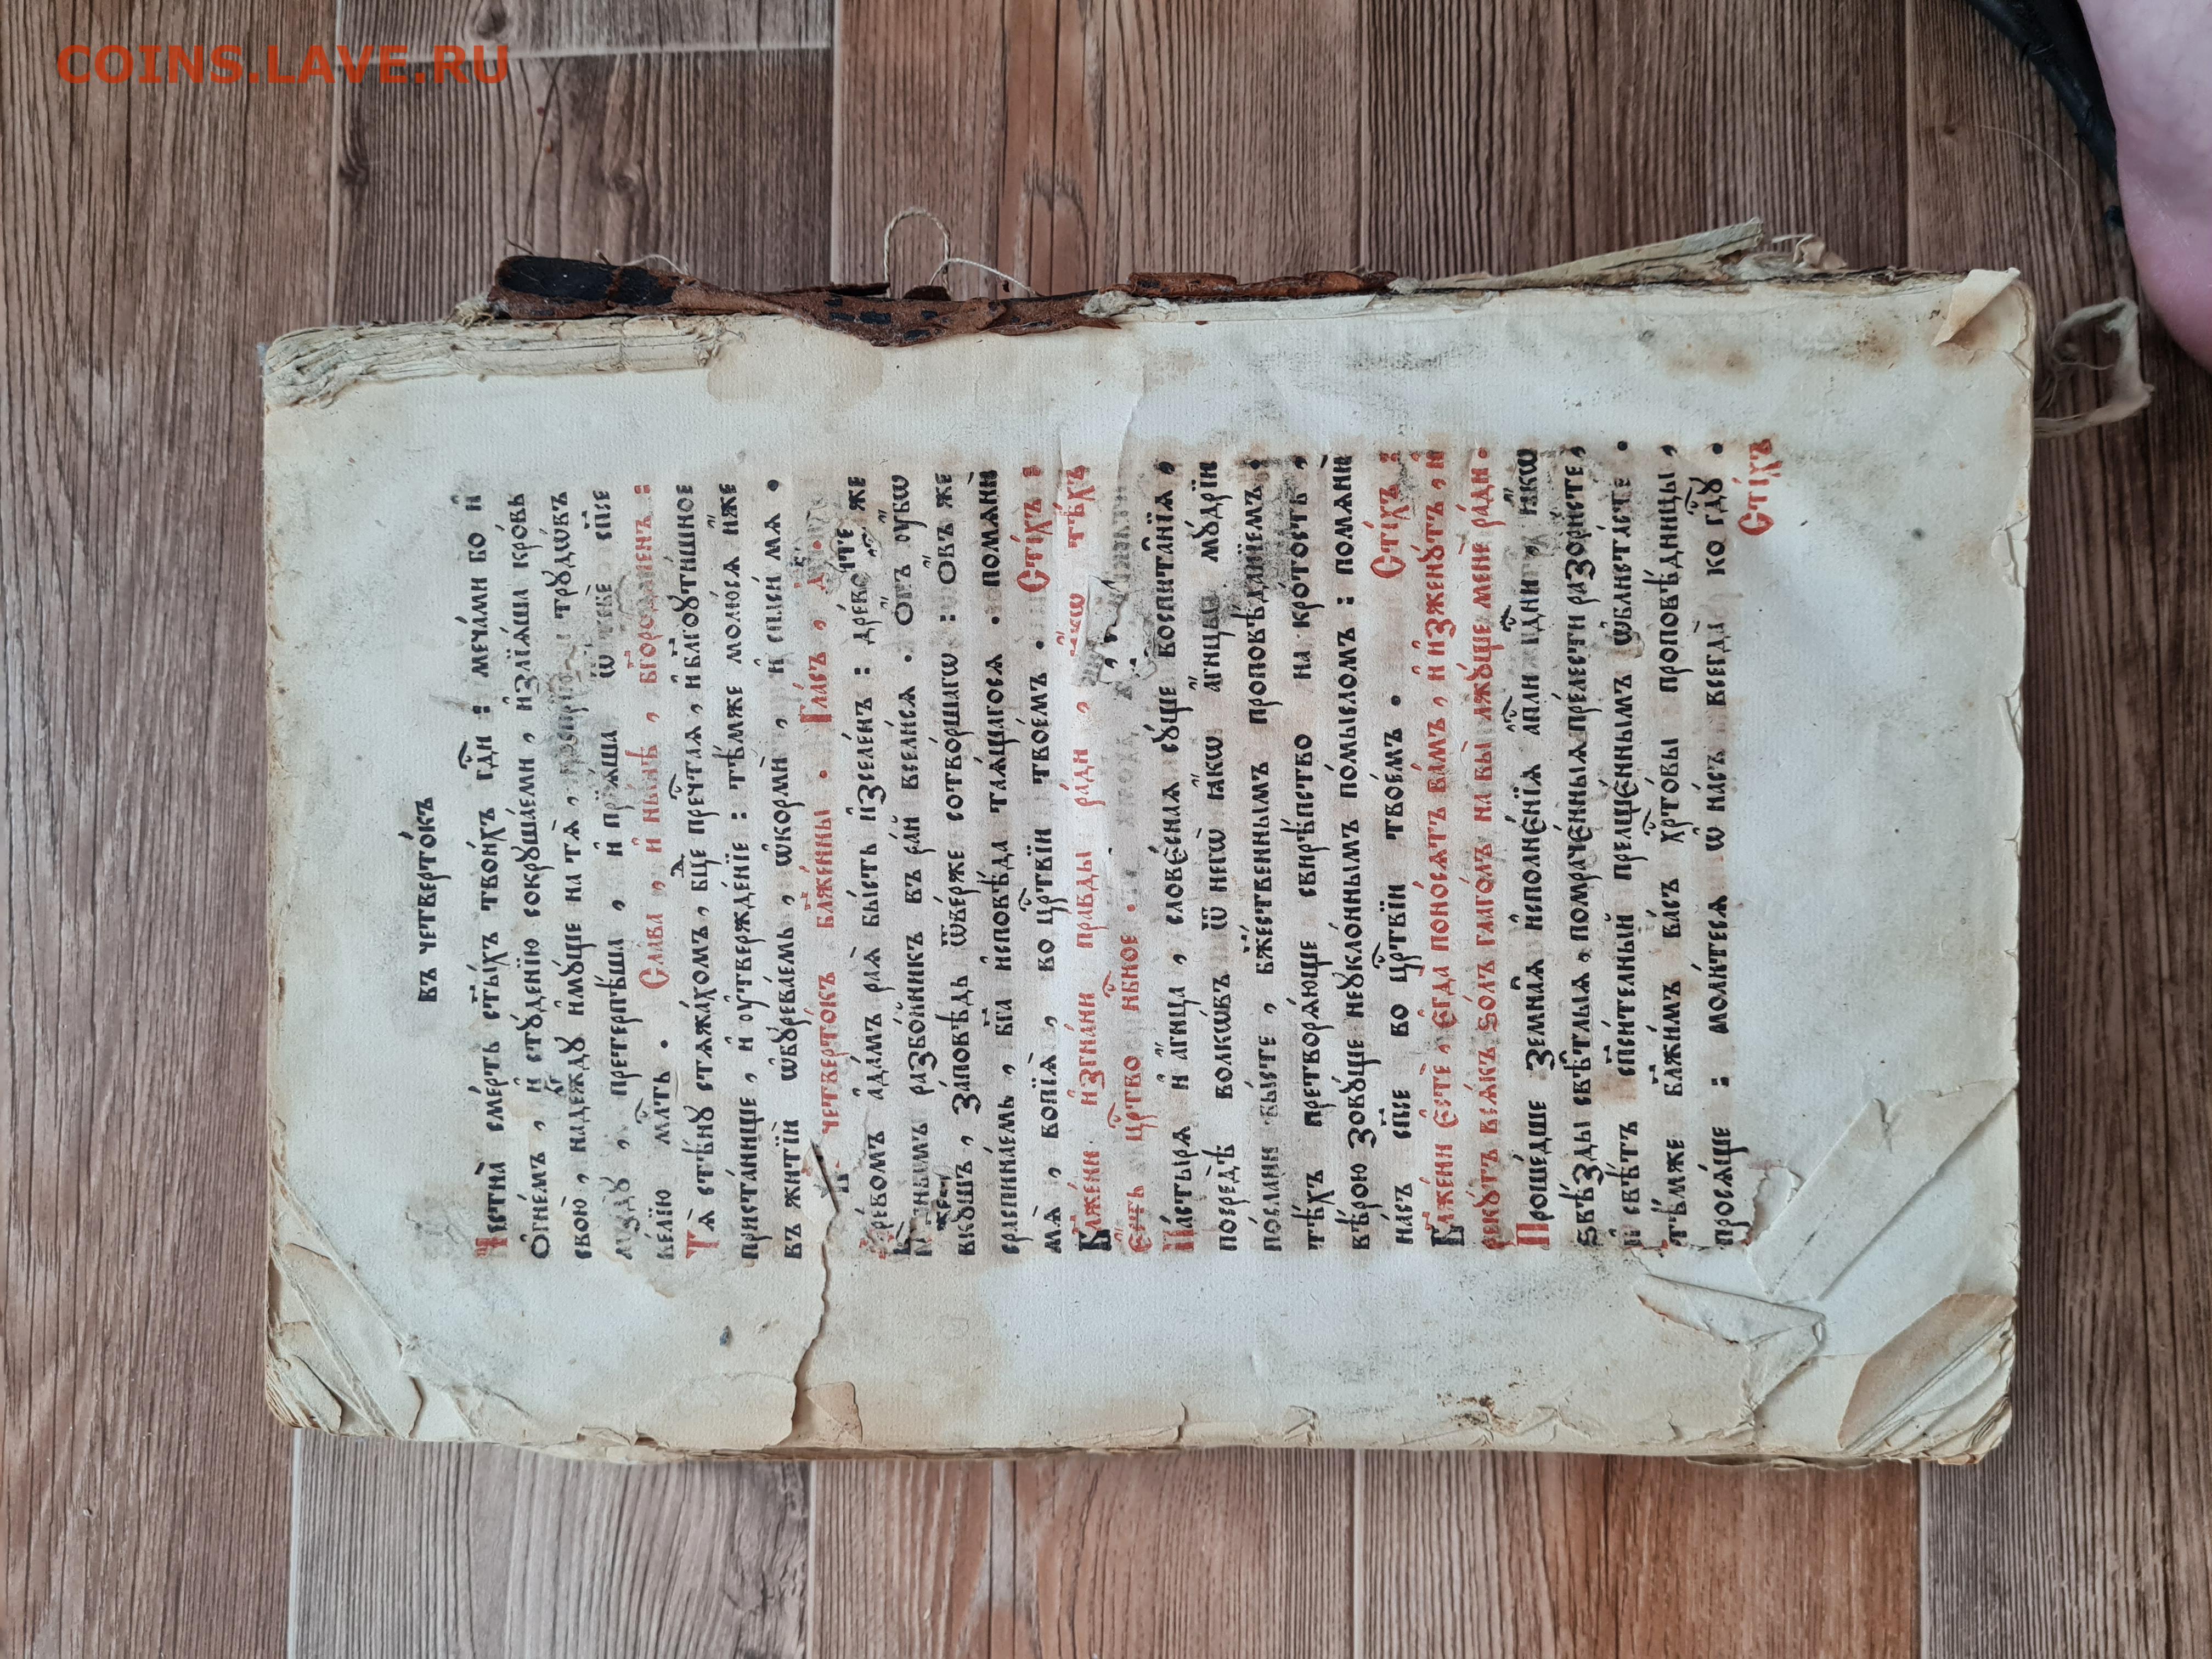 COINS.LAVE.RU
въ четверто́къ
Честна̀ сме́рть ст҃ы́хъ твои́хъ гдⷭ҇и : меча́ми бо и҆
ѻ҆гне́мъ , и҆ стꙋде́нїю сокрꙋша́еми , и҆злїѧ́ша кро́вь
свою̀ , наде́ждꙋ и҆мꙋ́ще на тѧ̀ , трꙋдѡ́въ
мздꙋ̀ , претерпѣ́ша , и҆ прїѧ́ша ѿ тебє̀ сп҃се
ве́лїю млⷭ҇ть . Сла́ва , и҆ ны́нѣ , бг҃оро́диченъ :
Тѧ̀ стѣ́нꙋ стѧжа́хомъ , бц҃е пречⷭ҇таѧ , и҆ бл҃гоꙋти́шное
приста́нище , и҆ ѹ҆твержде́нїе : тѣ́мже молю́сѧ и҆́же
въ житїѝ ѡ҆бꙋрева́емь , ѡ҆кормѝ , и҆ спⷭ҇и́ мѧ .
четверто́къ бл҃же́нны . Гла́съ , д҃ .
дре́вомъ а҆да́мъ раѧ̀ бы́сть и҆зселе́нъ : дре́вомъ же
крⷭ҇тнымъ разбо́йникъ въ ра́й всели́сѧ . Ѻ҆́въ ѹ҆́бѡ
вкꙋ́шъ , за́повѣдь ѿве́рже сотво́ршагѡ : ѻ҆́въ же
сраспина́емь , бг҃а и҆сповѣ́да таѧ́щагосѧ . помѧнѝ
мѧ̀ , вопїѧ̀ , во црⷭ҇твїи твое́мъ . Сті́хъ :
Бл҃же́ни и҆згна́ни пра́вды ра́ди , ꙗ҆́кѡ тѣ́хъ
є҆́сть црⷭ҇тво нбⷭ҇ное .
Па́стырѧ и҆ а҆́гнца , слове́снаѧ сꙋ́ще воспита̑нїѧ ,
посредѣ̀ волкѡ́въ ѿ негѡ̀ ꙗ҆́кѡ а҆́гнцы мꙋ́дрїи
по́слани бы́сте , бж҃е́ственнымъ проповѣ́данїемъ :
тѣ́хъ претворѧ́юще свирѣ́пство на кро́тость ,
вѣ́рою зовꙋ́ще неꙋкло́ннымъ по́мысломъ : помѧнѝ
на́съ сп҃се во црⷭ҇твїи твое́мъ . Сті́хъ :
Бл҃же́ни є҆стѐ , є҆гда̀ поно́сѧтъ ва́мъ , и҆ и҆зженꙋ́тъ , и҆
рекꙋ́тъ всѧ́къ ѕо́лъ глаго́лъ на вы̀ лжꙋ́ще менє̀ ра́ди .
Проше́дше земна̑ѧ и҆сполнє́нїѧ а҆пⷭ҇ли гдⷭ҇ни , ꙗ҆́кѡ
ѕвѣ́зды свѣ̑тлыѧ , помраче́нныѧ пре́лести разористе ,
и҆ свѣ́тъ сп҃си́телный прельще́ннымъ ѡ҆блиста́сте .
тѣ́мже бл҃жи́мъ ва́съ хрⷭ҇то́вы проповѣ̑дницы ,
просѧ́ще : моли́тесѧ ѡ҆ на́съ всегда̀ ко гдⷭ҇ꙋ .
Сті́хъ